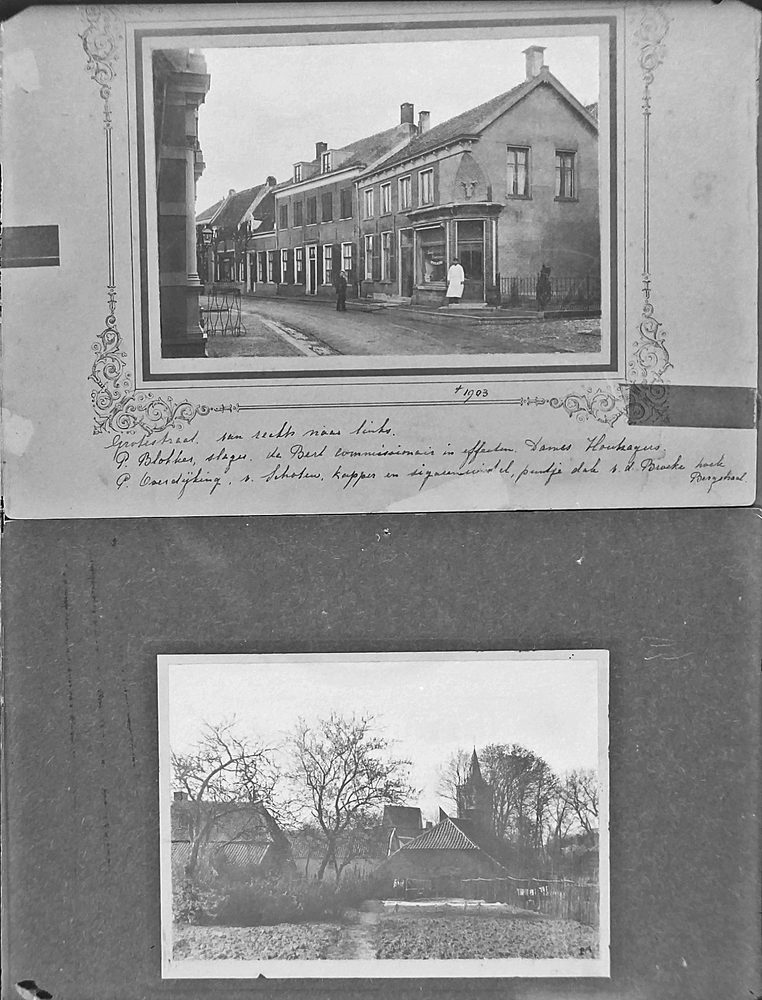 ± 1903
Grotestraat. van rechts naar links.
P. Blokker, slager. de Bert commissionair in effecten. Dames Houkagers
P. Overdijking. v. Schoten. kapper en sigarenwinkel, puntje dak v. d. Broeke hoek
Bergstraat.